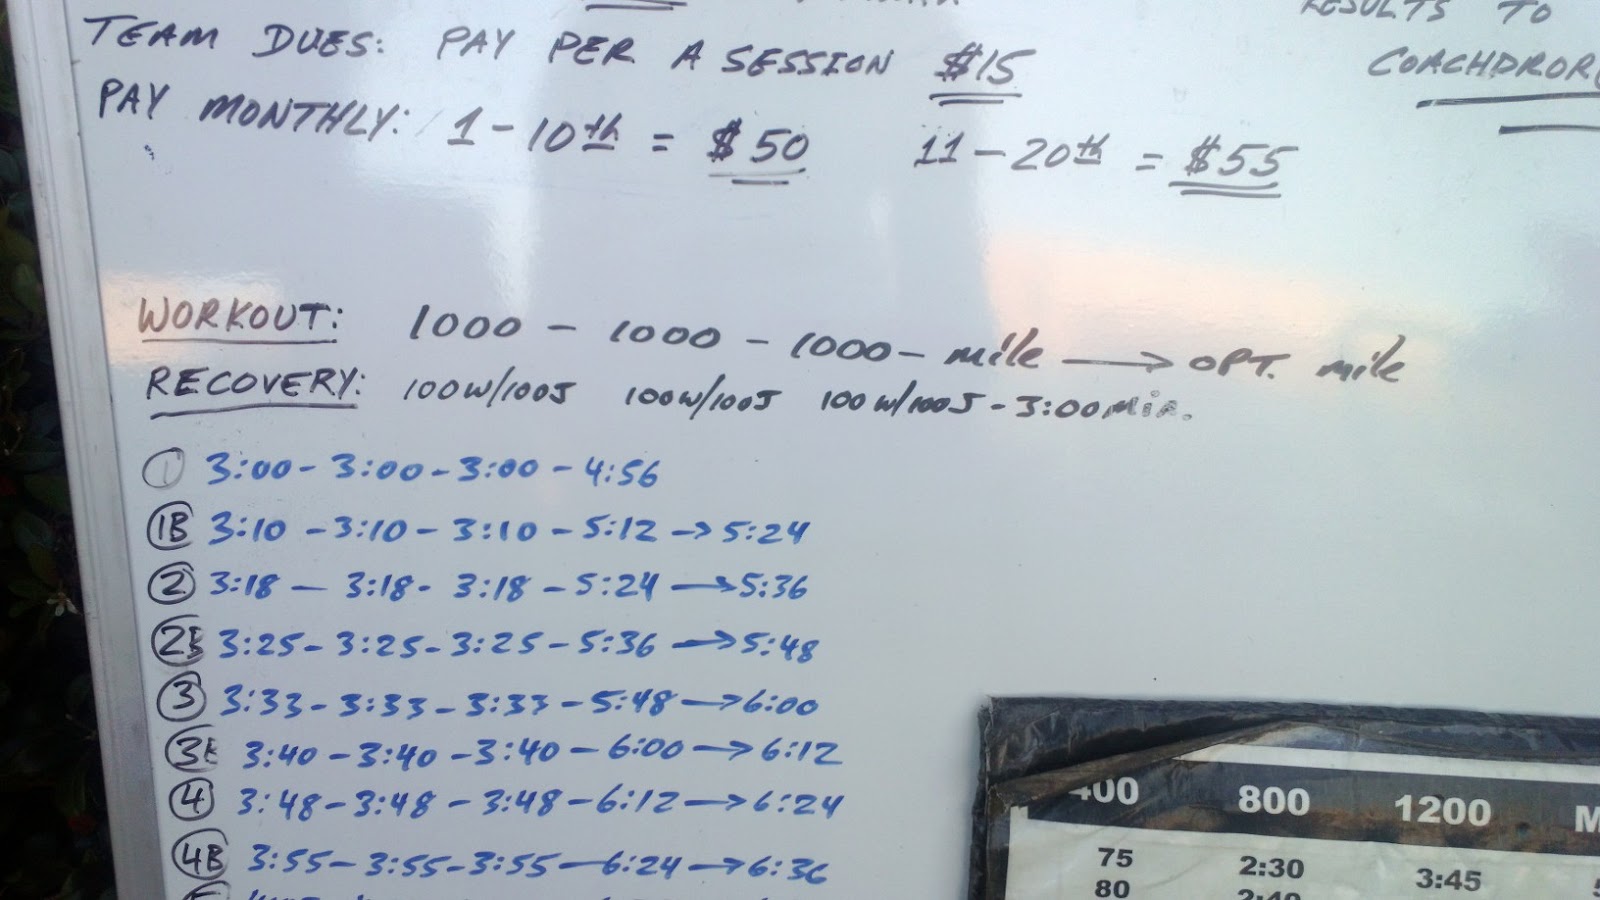 RESULTS TO
TEAM DUES: PAY PER A SESSION $15
COACHDROR
PAY MONTHLY: 1-10th = $50 11-20th = $55
WORKOUT: 1000 - 1000 - 1000 - mile → OPT. mile
RECOVERY: 100W/100J 100W/100J 100W/100J - 3:00 min.
① 3:00 - 3:00 - 3:00 - 4:56
1B 3:10 - 3:10 - 3:10 - 5:12 → 5:24
② 3:18 - 3:18 - 3:18 - 5:24 → 5:36
2B 3:25 - 3:25 - 3:25 - 5:36 → 5:48
③ 3:33 - 3:33 - 3:33 - 5:48 → 6:00
3B 3:40 - 3:40 - 3:40 - 6:00 → 6:12
④ 3:48 - 3:48 - 3:48 - 6:12 → 6:24
4B 3:55 - 3:55 - 3:55 - 6:24 → 6:36
400 800 1200 M
75 2:30 3:45
80 2:40